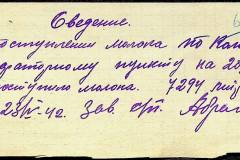 Сведение.
поступлении молока по
раторному пункту на 20
поступило молока. 7294
23/IV-42. Зав. с/п.